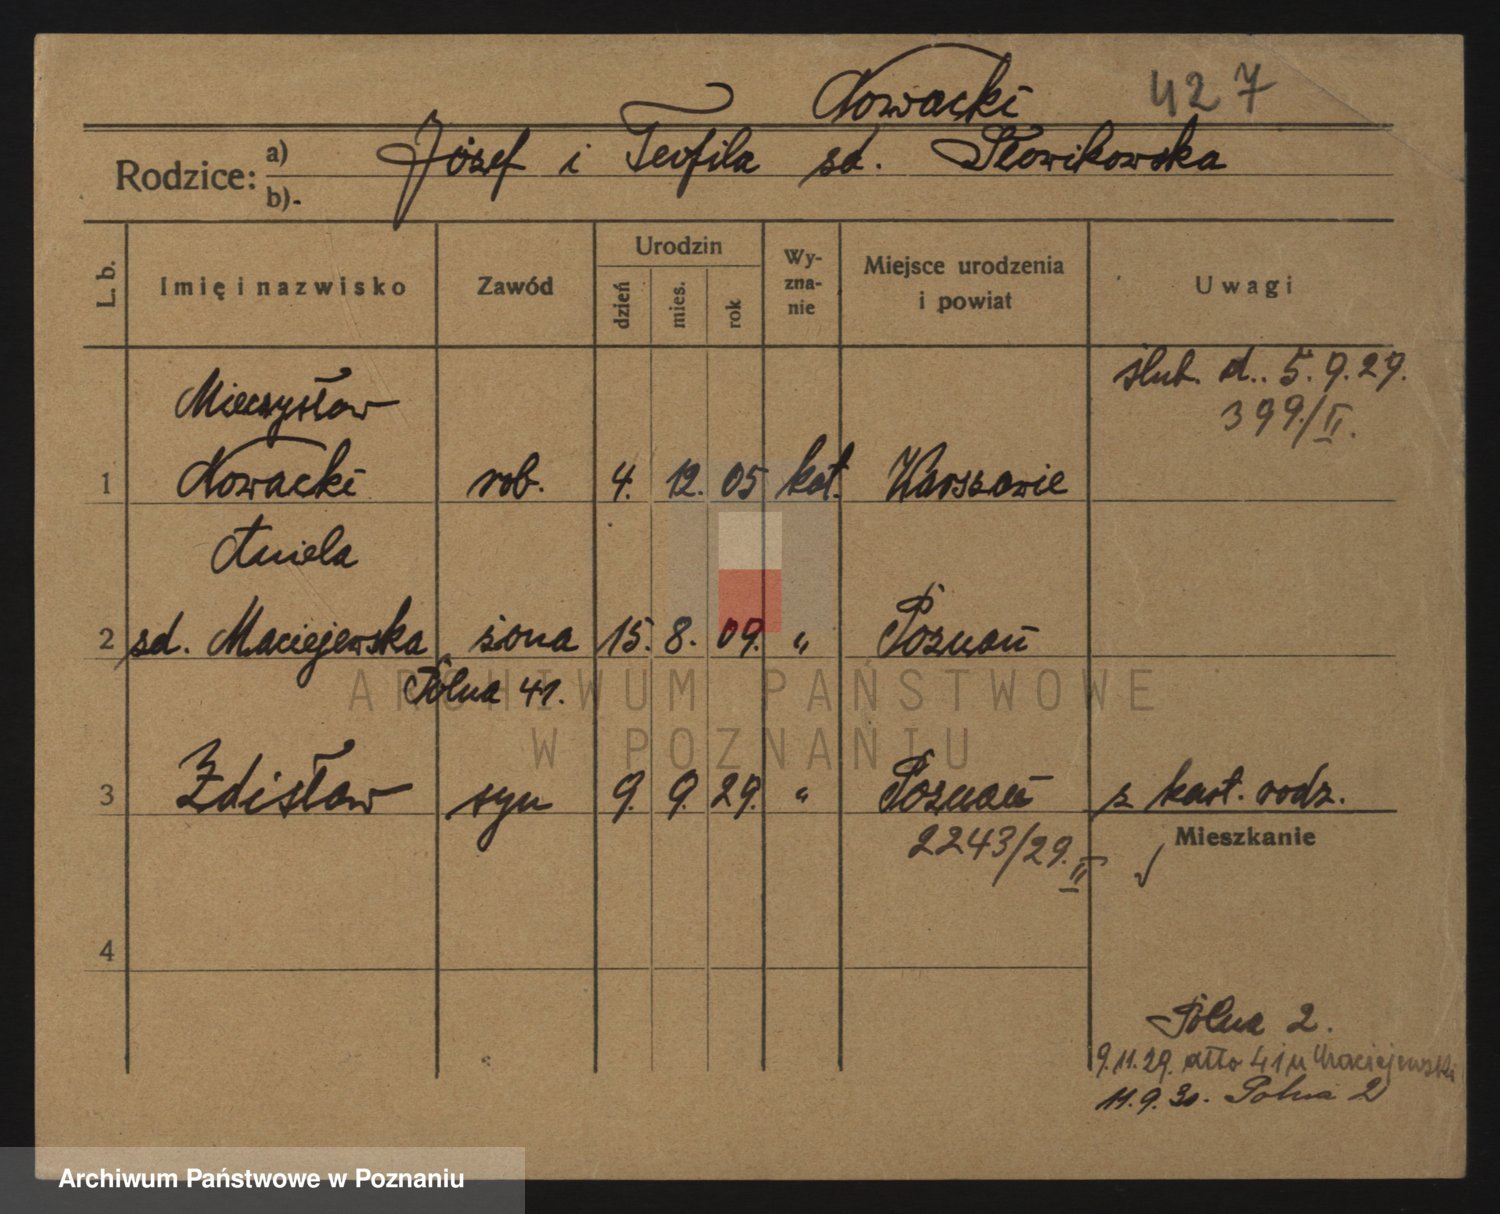 Nowacki 427
Rodzice: a) Józef i Teofila zd. Słowikowska
b)-
L. b. Imię i nazwisko Zawód Urodzin dzień mies. rok Wyznanie Miejsce urodzenia i powiat Uwagi
ślub. d.. 5.9.29.
399/II.
Mieczysław
1 Nowacki rob. 4. 12. 05 kat. Warszawie
Aniela
2 zd. Maciejewska żona 15. 8. 09. " Poznań
Polna 41.
3 Zdzisław syn 9. 9. 29. " Poznań z kart. rodz.
2243/29. II Mieszkanie
4
Polna 2.
9.11.29. dtto 41 u Maciejewski
11.9.30. Polna 2
ARCHIWUM PAŃSTWOWE
W POZNANIU
Archiwum Państwowe w Poznaniu